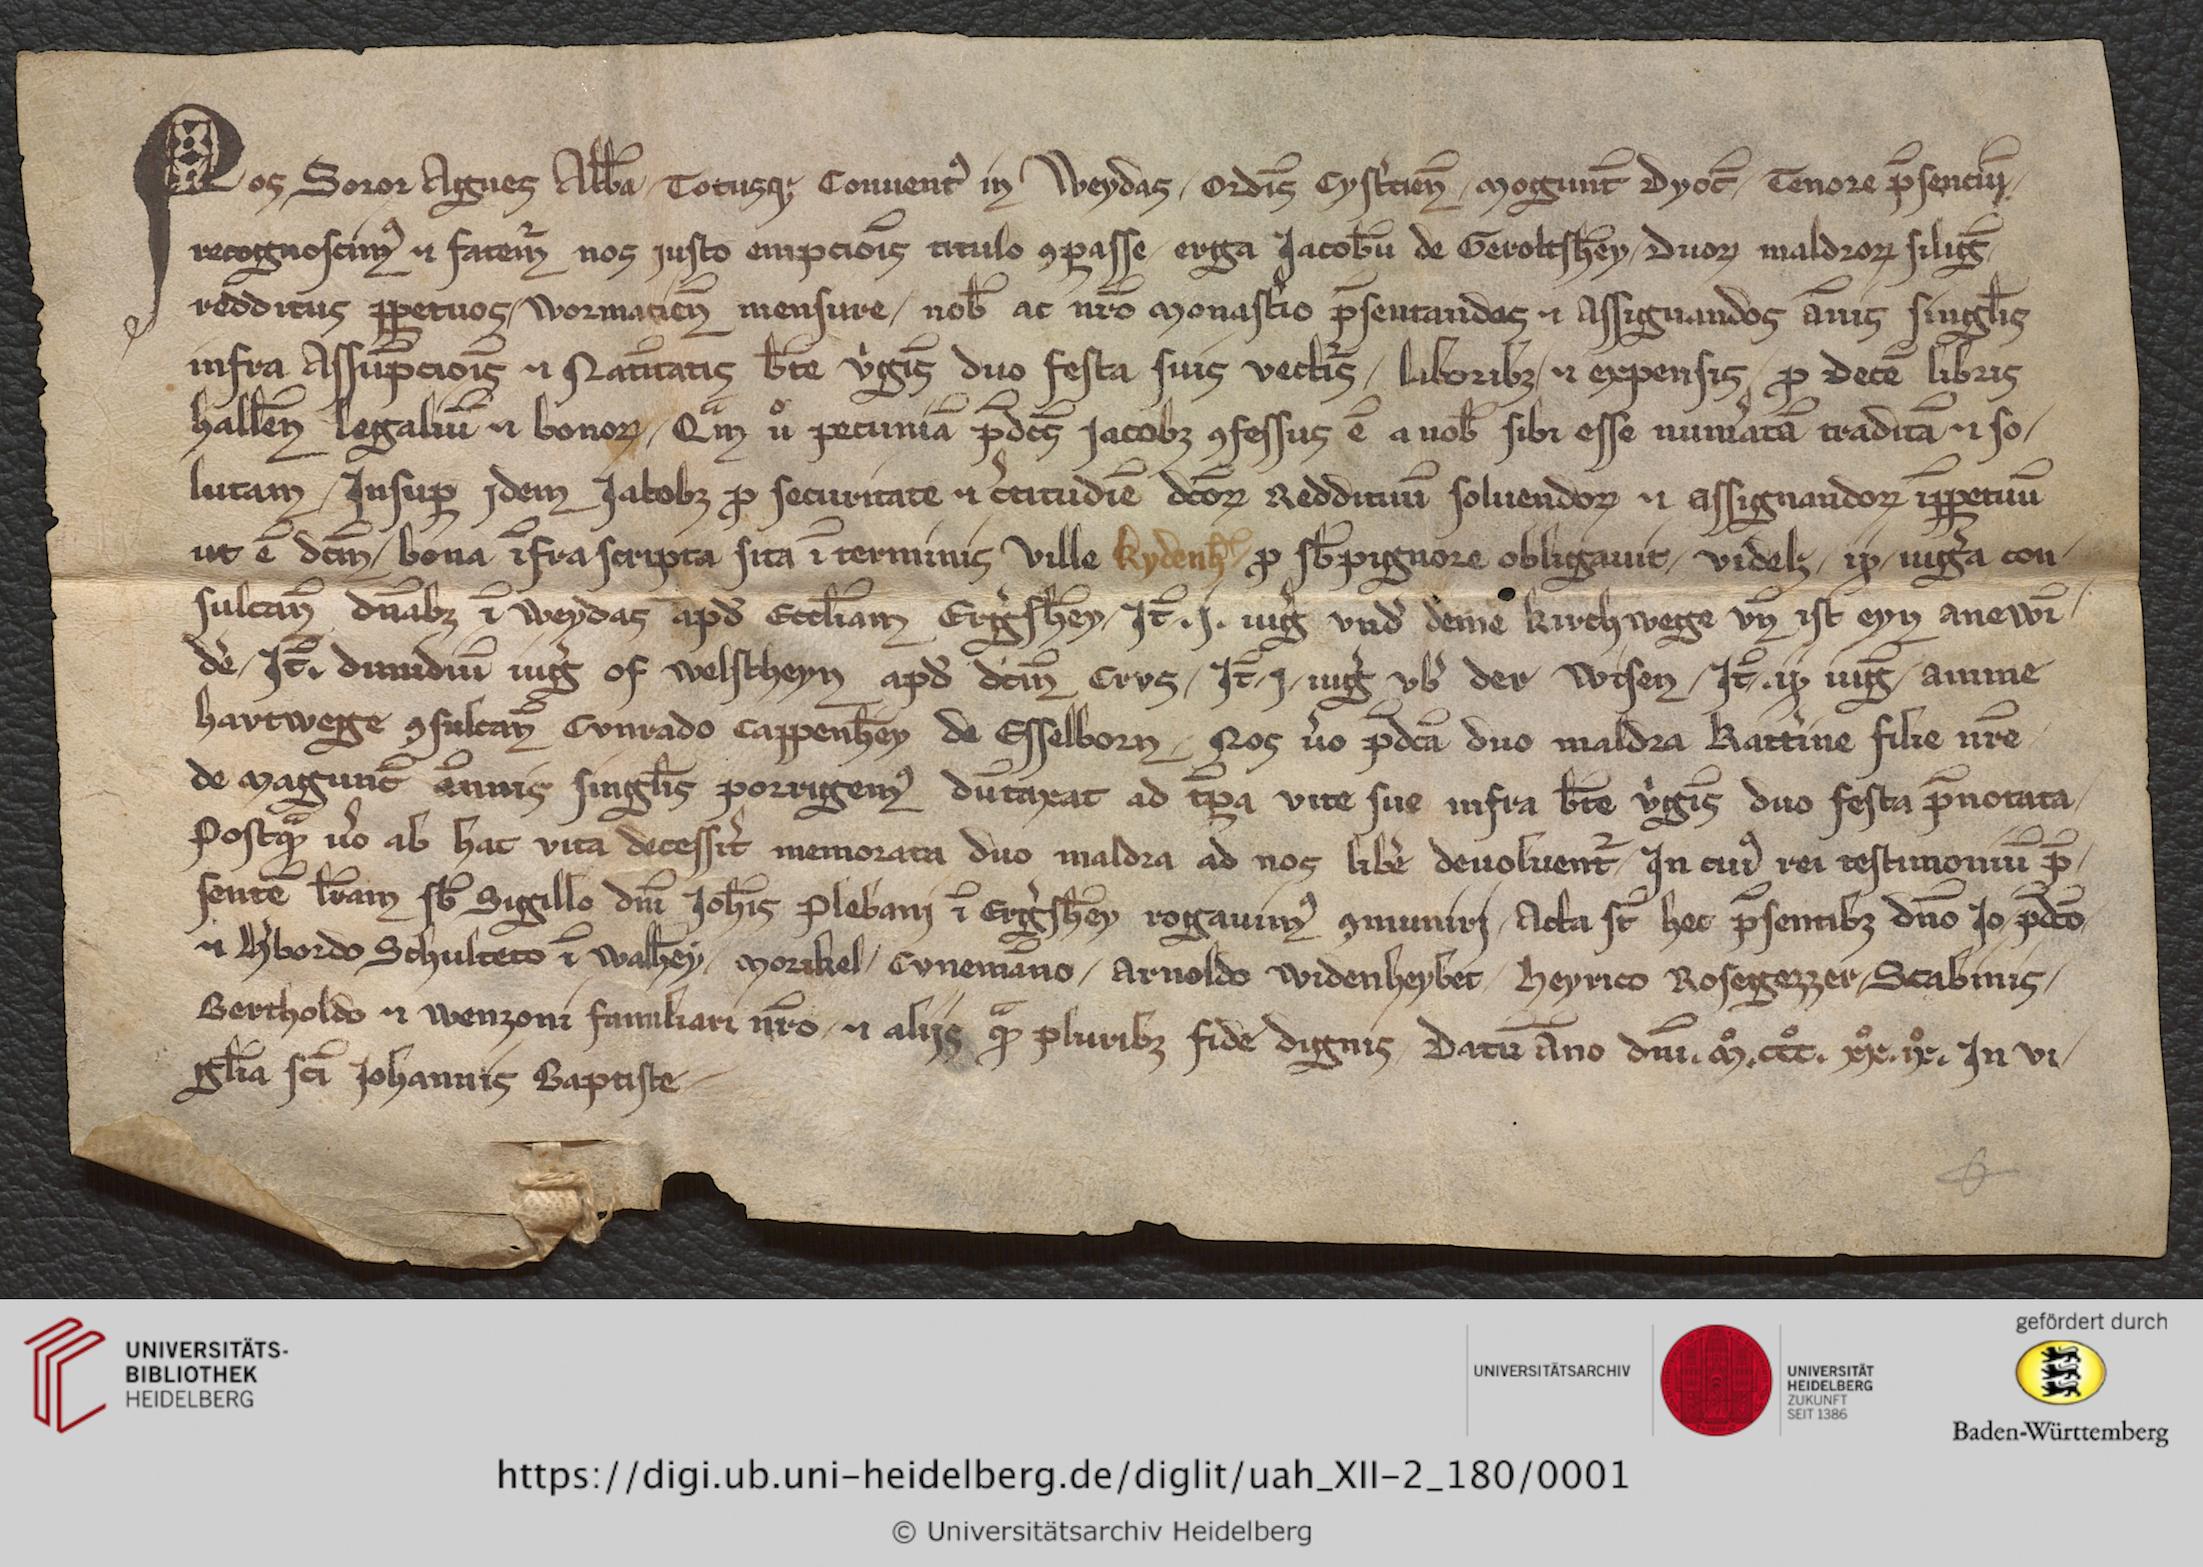 Nos Soror Agnes Abb̄a Totusqꝫ Conuentꝰ in Weydas ordīs Cystʼcien̄ mogunt̄ Dyoc̄ Tenore p̄senciū
recognoscimꝰ ⁊ fatem̄ nos justo empcōis titulo ꝯꝑasse erga Jacob̄u de Geroltsh̄ey Duoꝝ maldroꝝ siliḡ
redditus ꝑpetuos wormacien̄ mensure nob̄ ac nr̄o monastʼio p̄sentandos ⁊ Assignandos ānis singl̄is
infra Assūpcōis ⁊ Natiuitatis b̄te vʼgīs duo festa suis vectʼis laboribꝫ ⁊ expensis ꝓ decē libris
hallen̄ legaliū ⁊ bonoꝝ Qᵃm uͦ pecuniā p̄dc̄s Jacobꝫ ꝯfessus ē a nob̄ sibi esse numʼatā traditā ⁊ so
lutam Insuꝑ jdem Jacobꝫ ꝓ securitate ⁊ cʼtitudīe dc̄oꝝ Reddituū soluendoꝝ ⁊ assignandoꝝ īꝑpetuū
ut ē dc̄m bona īfra scripta sita ī terminis ville kydenh̄ ꝓ sb̄pignore obligauit videlꝫ ij iugʼa con
sulcan̄ dn̄abꝫ ī weydas apd̄ Eccl̄iam Ergʼsh̄ey It̄ .j. iugʼ vndʼ deme kirchwege vn̄ ist eyn anewī
dē It̄. dimidiū iugʼ of welscheyn apd̄ dc̄m Crvs It̄ .j. iugʼ vbʼ der wisen It̄ .ij iuḡ amme
hartwege ꝯsulcan̄ Cvnrado Cappenh̄ey de Esselborn Nos vʼo p̄dc̄a duo maldra kattʼine filie nr̄e
de magunt̄ annis singl̄is porrigemꝰ dūtaxat ad tp̄a vite sue infra b̄te vʼgīs duo festa p̄notata
Postqᵃm vʼo ab hac vita decessʼit memorata duo maldra ad nos libʼe deuoluent̄ In cuiꝰ rei testimoniū p̄
sentē lr̄am sb̄ Sigillo dn̄i Joh̄is Plebanj ī Ergʼsh̄ey rogauimꝰ ꝯmunirj Acta st̄ hec p̄sentibꝫ dn̄o Jo p̄dc̄o
⁊ hʼbordo Schulteto ī walh̄ey morikel Cvnemāno Arnoldo widenheybet heyrico Rosegezzer Scabinis
Bertholdo ⁊ wenzoni familiari nr̄o ⁊ alijs qᵃm pluribꝫ fide dignis Datū āno dn̄i. Mͦ. CCCͦ. xxͦ. ijͦ. In vi
gl̄ia sc̄i Johannis Baptiste
UNIVERSITÄTS-
BIBLIOTHEK
HEIDELBERG
UNIVERSITÄTSARCHIV
UNIVERSITÄT
HEIDELBERG
ZUKUNFT
SEIT 1386
gefördert durch
Baden-Württemberg
https://digi.ub.uni-heidelberg.de/diglit/uah_XII-2_180/0001
© Universitätsarchiv Heidelberg